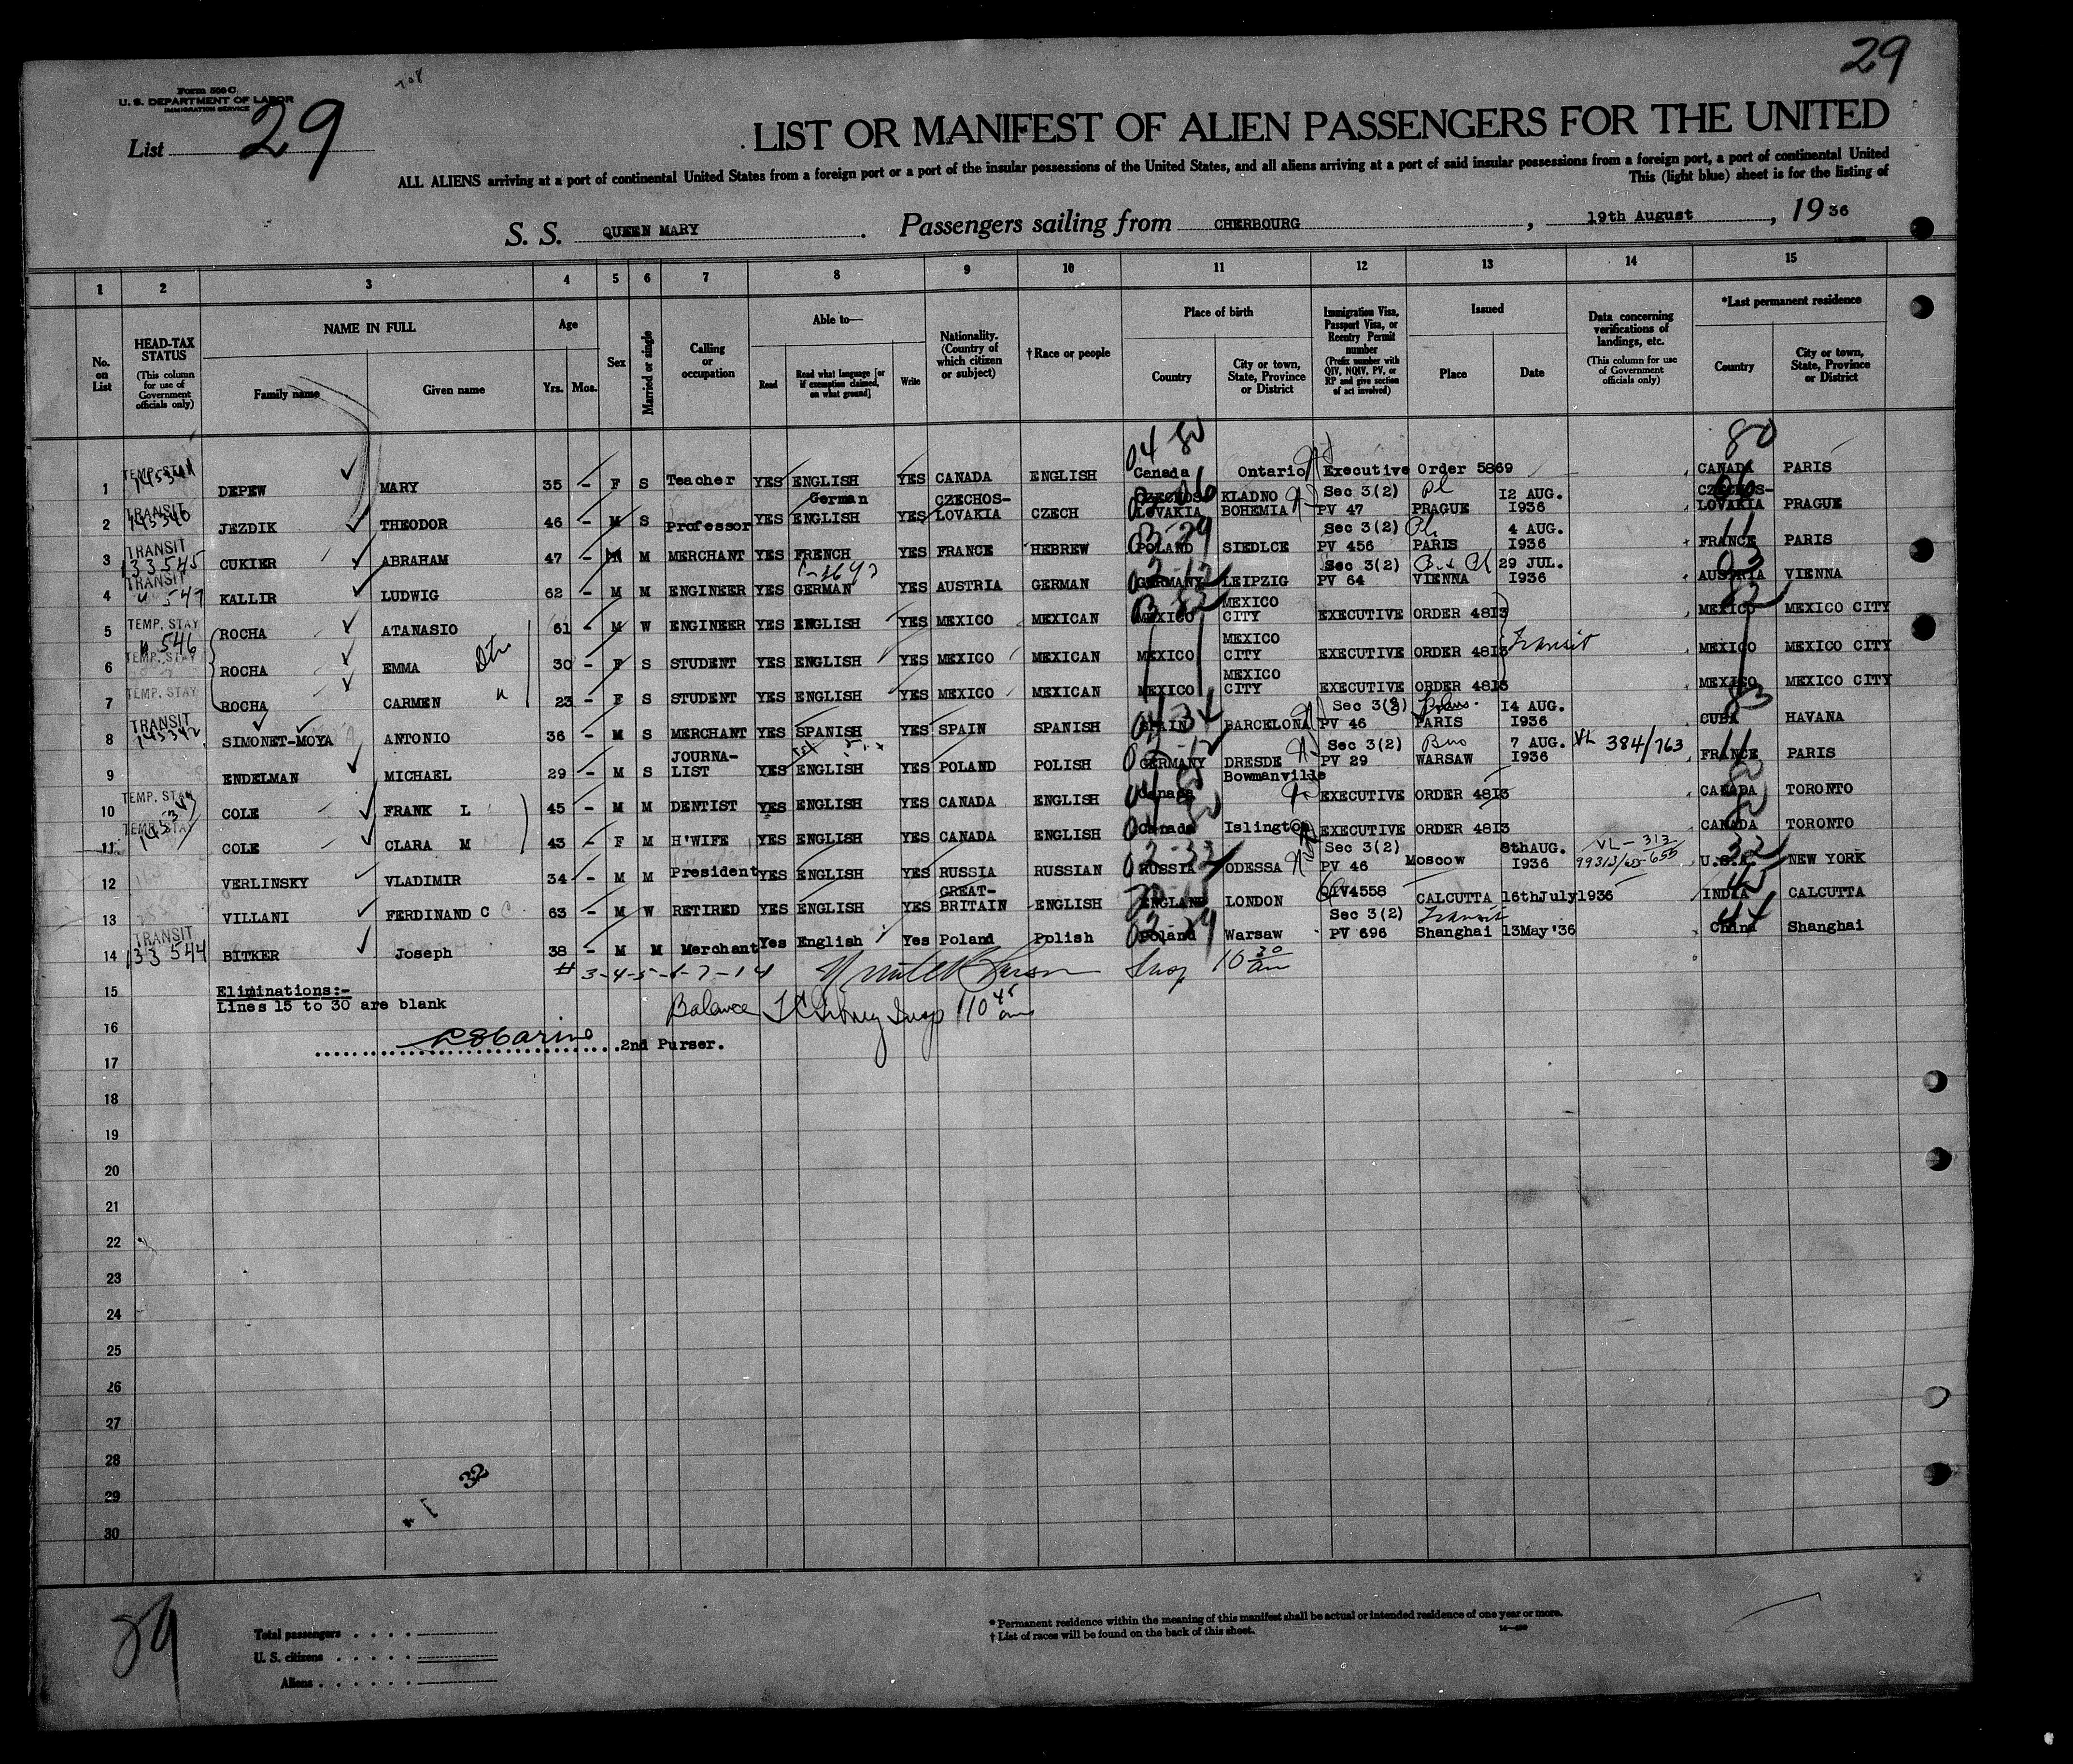 29
Form 500 C
U. S. DEPARTMENT OF LABOR
IMMIGRATION SERVICE
List 29
LIST OR MANIFEST OF ALIEN PASSENGERS FOR THE UNITED
ALL ALIENS arriving at a port of continental United States from a foreign port or a port of the insular possessions of the United States, and all aliens arriving at a port of said insular possessions from a foreign port, a port of continental United
This (light blue) sheet is for the listing of
S. S. QUEEN MARY. Passengers sailing from CHERBOURG, 19th August, 1936
1 2 3 4 5 6 7 8 9 10 11 12 13 14 15
No. on List
HEAD-TAX STATUS (This column for use of Government officials only)
NAME IN FULL Family name Given name
Age Yrs. Mos.
Sex
Married or single
Calling or occupation
Able to— Read Read what language [or if exemption claimed, on what ground] Write
Nationality. (Country of which citizen or subject)
†Race or people
Place of birth Country City or town, State, Province or District
Immigration Visa, Passport Visa, or Reentry Permit number (Prefix number with QIV, NQIV, PV, or RP and give section of act involved)
Issued Place Date
Data concerning verifications of landings, etc. (This column for use of Government officials only)
*Last permanent residence Country City or town, State, Province or District
04 80 80
1 TEMP. STAY DEPEW MARY 35 - F S Teacher YES ENGLISH YES CANADA ENGLISH Canada Ontario Executive Order 5869 CANADA PARIS
2 TRANSIT 145340 JEZDIK THEODOR 46 - M S Professor YES German ENGLISH YES CZECHOS-LOVAKIA CZECH CZECHOS-LOVAKIA KLADNO BOHEMIA Sec 3(2) PV 47 PRAGUE 12 AUG. 1936 CZECHOS-LOVAKIA PRAGUE
3 TRANSIT 133545 CUKIER ABRAHAM 47 - M M MERCHANT YES FRENCH YES FRANCE HEBREW POLAND SIEDLCE Sec 3(2) PV 456 PARIS 4 AUG. 1936 FRANCE PARIS
4 TRANSIT " 547 KALLIR LUDWIG 62 - M M ENGINEER YES GERMAN YES AUSTRIA GERMAN GERMANY LEIPZIG Sec 3(2) PV 64 VIENNA 29 JUL. 1936 AUSTRIA VIENNA
5 TEMP. STAY " 546 ROCHA ATANASIO 61 - M W ENGINEER YES ENGLISH YES MEXICO MEXICAN MEXICO MEXICO CITY EXECUTIVE ORDER 4813 MEXICO MEXICO CITY
6 TEMP. STAY ROCHA EMMA Dtr 30 - F S STUDENT YES ENGLISH YES MEXICO MEXICAN MEXICO MEXICO CITY EXECUTIVE ORDER 4813 Transit MEXICO MEXICO CITY
7 TEMP. STAY ROCHA CARMEN " 23 - F S STUDENT YES ENGLISH YES MEXICO MEXICAN MEXICO MEXICO CITY EXECUTIVE ORDER 4813 MEXICO MEXICO CITY
8 TRANSIT 145342 SIMONET-MOYA ANTONIO 36 - M S MERCHANT YES SPANISH YES SPAIN SPANISH SPAIN BARCELONA Sec 3(2) PV 46 PARIS 14 AUG. 1936 CUBA HAVANA
9 ENDELMAN MICHAEL 29 - M S JOURNA-LIST YES ENGLISH YES POLAND POLISH GERMANY DRESDE Sec 3(2) PV 29 WARSAW 7 AUG. 1936 VL 384/763 FRANCE PARIS
10 TEMP. STAY COLE FRANK L 45 - M M DENTIST YES ENGLISH YES CANADA ENGLISH Canada Bowmanville EXECUTIVE ORDER 4813 CANADA TORONTO
11 TEMP. STAY COLE CLARA M 43 - F M H'WIFE YES ENGLISH YES CANADA ENGLISH Canada Islington EXECUTIVE ORDER 4813 CANADA TORONTO
12 VERLINSKY VLADIMIR 34 - M M President YES ENGLISH YES RUSSIA RUSSIAN RUSSIA ODESSA Sec 3(2) PV 46 Moscow 8thAUG. 1936 VL - 313 U.S.A. NEW YORK
13 VILLANI FERDINAND C 63 - M W RETIRED YES ENGLISH YES GREAT-BRITAIN ENGLISH ENGLAND LONDON QIV4558 CALCUTTA 16thJuly1936 INDIA CALCUTTA
14 TRANSIT 133544 BITKER Joseph 38 - M M Merchant Yes English Yes Poland Polish Poland Warsaw Sec 3(2) PV 696 Transit Shanghai 13May'36 China Shanghai
# 3-4-5-6-7-14 Insp 10 30 am
15 Eliminations:-
Lines 15 to 30 are blank
Balance Insp 110 45 am
16
2nd Purser.
17
18
19
20
21
22
23
24
25
26
27
28
32
29
30
Total passengers
U. S. citizens
Aliens
*Permanent residence within the meaning of this manifest shall be actual or intended residence of one year or more.
†List of races will be found on the back of this sheet.